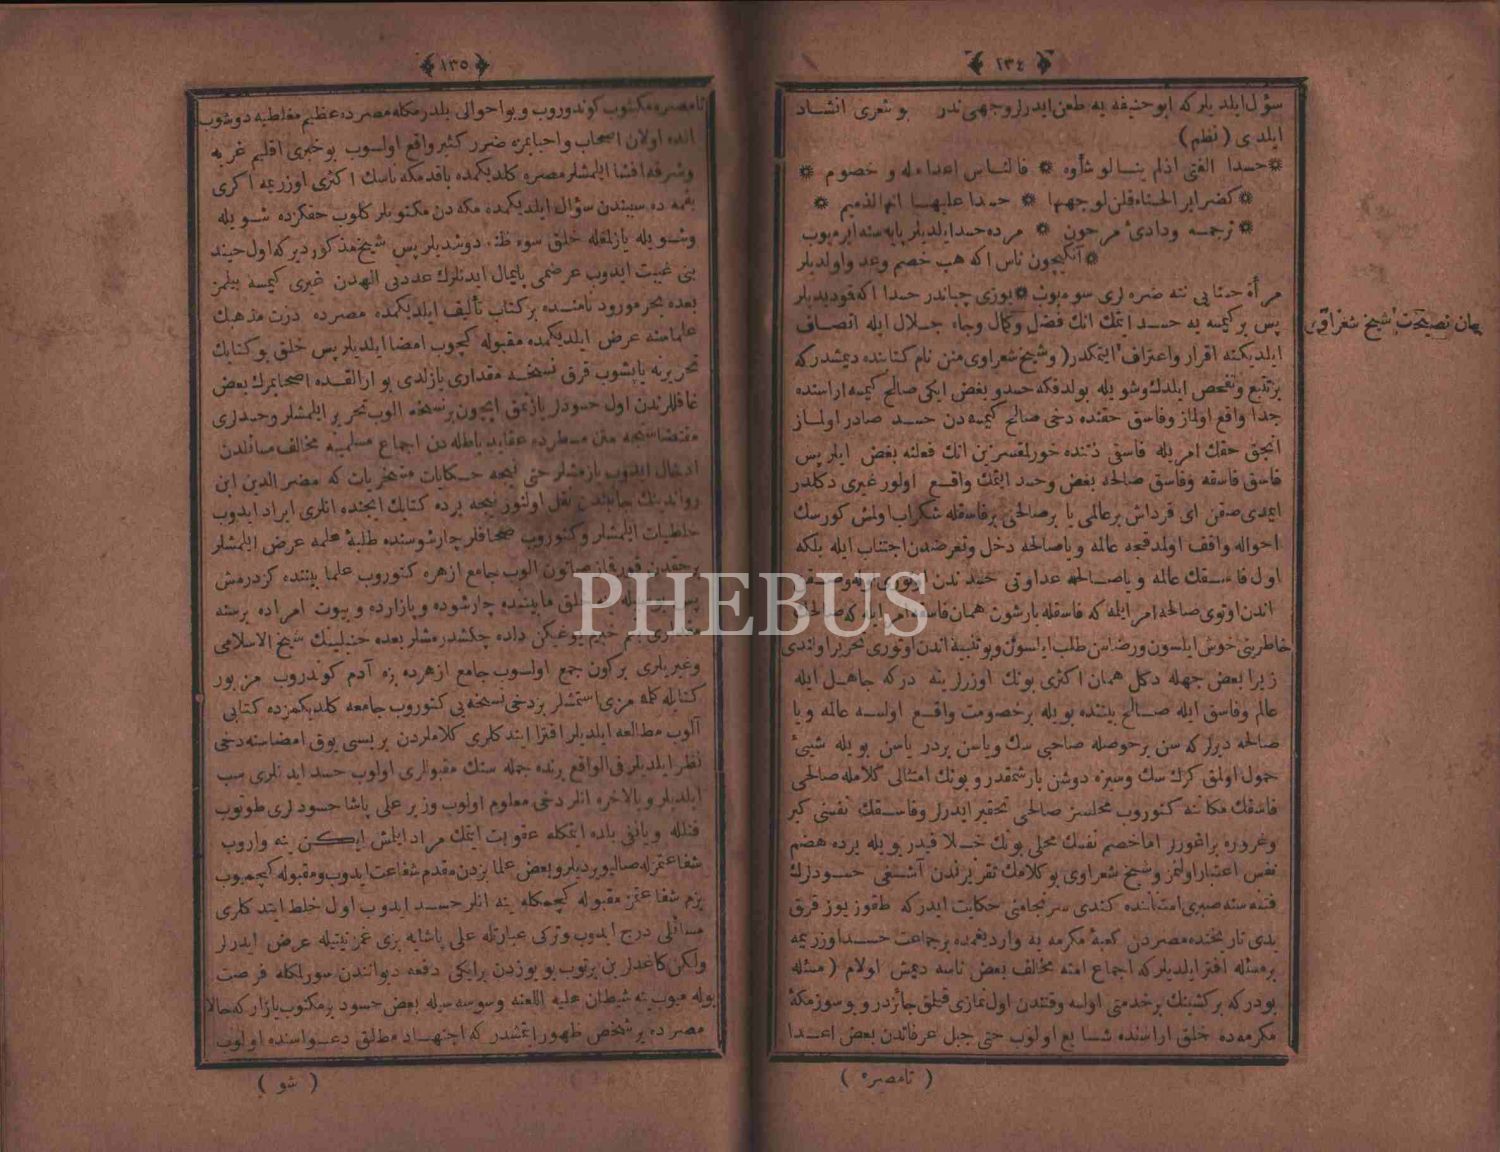 ١٣٤
سؤل ايلديلركه ابو حنيفه يه طعن ايدرلر وجهى ندر بو شعرى انشاد
ايلدى (نظم)
حسدا الفتى اذلم ينالوشأوه فالناس اعداءله و خصوم
كضرائر الحسناء قلن لوجهها حسدا عليها انه الذميم
ترجمه ودادئ مرحوم مرده حسد ايلديلر پايه سنه ايرميوب
آنكيچون ناس اكه هب خصم وعدو اولديلر
يوزى چباندر حسدا اكه قو ديديلر
پس بر كيمسه يه حسد ايتمك انك فضل وكمال وجاه جلال ايله انصاف
ايلديكنه اقرار واعتراف ايتمكدر (وشيخ شعراوى منن نام كتابنده ديمشدركه
بز تتبع وتفحص ايلدك وشويله بولدقكه حسد و بغض ايكى صالح كيمسه اراسنده
جدا واقع اولماز وفاسق حقنده دخى صالح كيمسه دن حسد صادر اولماز
انجق حقك امريله فاسقى ذمنده انك فعلنه بغض ايلر پس
فاسق فاسقه وفاسق صالحه بغض وحسد ايتمك واقع اولور غيرى دكلدر
ايمدى صقن اى قرداش بر عالمى يا بر صالحى بر فاسقله شكراب اولمش كورسك
احواله واقف اولمدقجه عالمه ويا صالحه دخل وتعرضدن اجتناب ايله بلكه
اول فاسقك عالمه ويا صالحه عداوتى حسدندن
اندن اوتورى صالحه امر ايلمه كه فاسقله بارشون همان فاسقه امر ايله كه صالحك
خاطرينى خوش ايلسون ورضاسن طلب ايلسون وبو تنبيه اندن اوتورى تحرير اولندى
زيرا بعض جهله دكل همان اكثرى بونك اوزرلرينه دركه جاهل ايله
عالم وفاسق ايله صالح بيننده بويله بر خصومت واقع اولسه عالمه ويا
صالحه ديرلركه سن بر حوصله صاحبى سك بويله شيئ
حمول اولمق كرك سك وسزه دوشن بارشمقدر وبونك امثالى كلامله صالحى
فاسقك مكاننه كتوروب مجلسنز صالحى تحقير ايدرلر وفاسقك نفسنى كبر
وغروره براغورلر اما خصم نفسك محلى بونك خلافيدر بويله يرده هضم
نفس اعتبار اولنمز وشيخ شعراوى بو كلامك تقريرندن آشنغى حسودلرك
فتنه سنه صبرى امتناننده كندى سرنجامنى حكايت ايدركه طقوز يوز قرق
يدى تاريخنده مصردن كعبۀ مكرمه يه وارديغمده بر جماعت حسدا اوزريمه
بر مسئله افترا ايلديلركه اجماع امته مخالف بعض ناسه ديمش اولام (مسئله
بودركه بر كشينك بر خدمتى اولسه وقتندن اول نمازى قيلمق جائزدر و بو سوز مكۀ
مكرمه ده خلق اراسنده شايع اولوب حتى جبل عرفاتدن بعض اعدا
(تا مصره)
شيخ شعراوى
١٣٥
تا مصره مكتوب كوندوروب و بو احوالى بلدرمكله مصرده عظيم مغلطه يه دوشوب
انده اولان اصحاب واحبابمزه ضرر كثير واقع اولوب بو خبرى اقليم غربيه
وشرقه افشا ايلمشلر مصره كلديكمده باقدمكه ناسك اكثرى اوزريمه اكرى
بقمه ده سببندن سؤال ايلديكمده مكه دن مكتوبلر كلوب حقكزده شويله
وشويله يازلمغله خلق سوء ظنه دوشديلر پس شيخ مذكور ديركه اول حينده
بنى غيبت ايدوب عرضمى پايمال ايدنلرك عددينى اللهدن غيرى كيمسه بيلمز
بعده بحر مورود نامنده بر كتاب تأليف ايلديكمده مصرده درت مذهبك
علماسنه عرض ايلديكمده مقبوله كچوب امضا ايلديلر پس خلق بو كتابك
تحريرينه ياپشوب قرق نسخه مقدارى يازلدى بو ارالقده اصحابمزك بعض
غافللرندن اول حسودلر يازمق ايچون بر نسخه الوب تحرير ايلمشلر وحسدلرى
مقتضاسنجه متن مسطرده عقايد باطله دن اجماع مسلمينه مخالف مسائلدن
ادخال ايدوب يازمشلر حتى نيجه حكايات مسخريات كه مضر الدين ابن
نقل اولنور نيجه يرده كتابك ايچنده انلرى ايراد ايدوب
خلطيات ايلمشلر وكتوروب صحافلر چارشوسنده طلبۀ علمه عرض ايلمشلر
الوب جامع ازهره كتوروب علما بيننده كزدرمش
خلق مابيننده چارشوده و پازارده و بيوت امراده برسنه
بنم خبرم يوغيكن داده چكشدرمشلر بعده حنبلينك شيخ الاسلامى
وغيريلرى بر كون جمع اولوب جامع ازهرده بزه آدم كوندروب مزبور
كتابله كلمه مزى استمشلر بز دخى نسخه يى كتوروب جامعه كلديكمزده كتابى
آلوب مطالعه ايلديلر افترا ايتدكلرى كلاملردن بريسى يوق امضاسنه دخى
نظر ايلديلر فى الواقع يرنده جمله سنك مقبوللرى اولوب حسد ايدنلرى سب
ايلديلر وبالاخره انلر دخى معلوم اولوب وزير على پاشا حسودلرى طوتوب
قتلله ويا نفى بلده ايتمكله عقوبت ايتمك مراد ايلمش ايكن ينه واروب
شفاعتمزله صاليويرديلر وبعض علما بزدن مقدم شفاعت ايدوب ومقبوله كچميوب
بزم شفاعتمز مقبوله كچمكله ينه انلر حسد ايدوب اول خلط ايتدكلرى
مسائلى درج ايدوب وتركى عبارتله على پاشايه بزى غمز نيتيله عرض ايدرلر
ولكن كاغدلرين يرتوب بو يوزدن بر ايكى دفعه ديواندن سورلمكله فرصت
بوله ميوب ينه شيطان عليه اللعنه وسوسه سيله بعض حسود بر مكتوب يازاركه حالا
مصرده بر شخص ظهور ايتمشدر كه اجتهاد مطلق دعواسنده اولوب
(شو)
PHEBUS